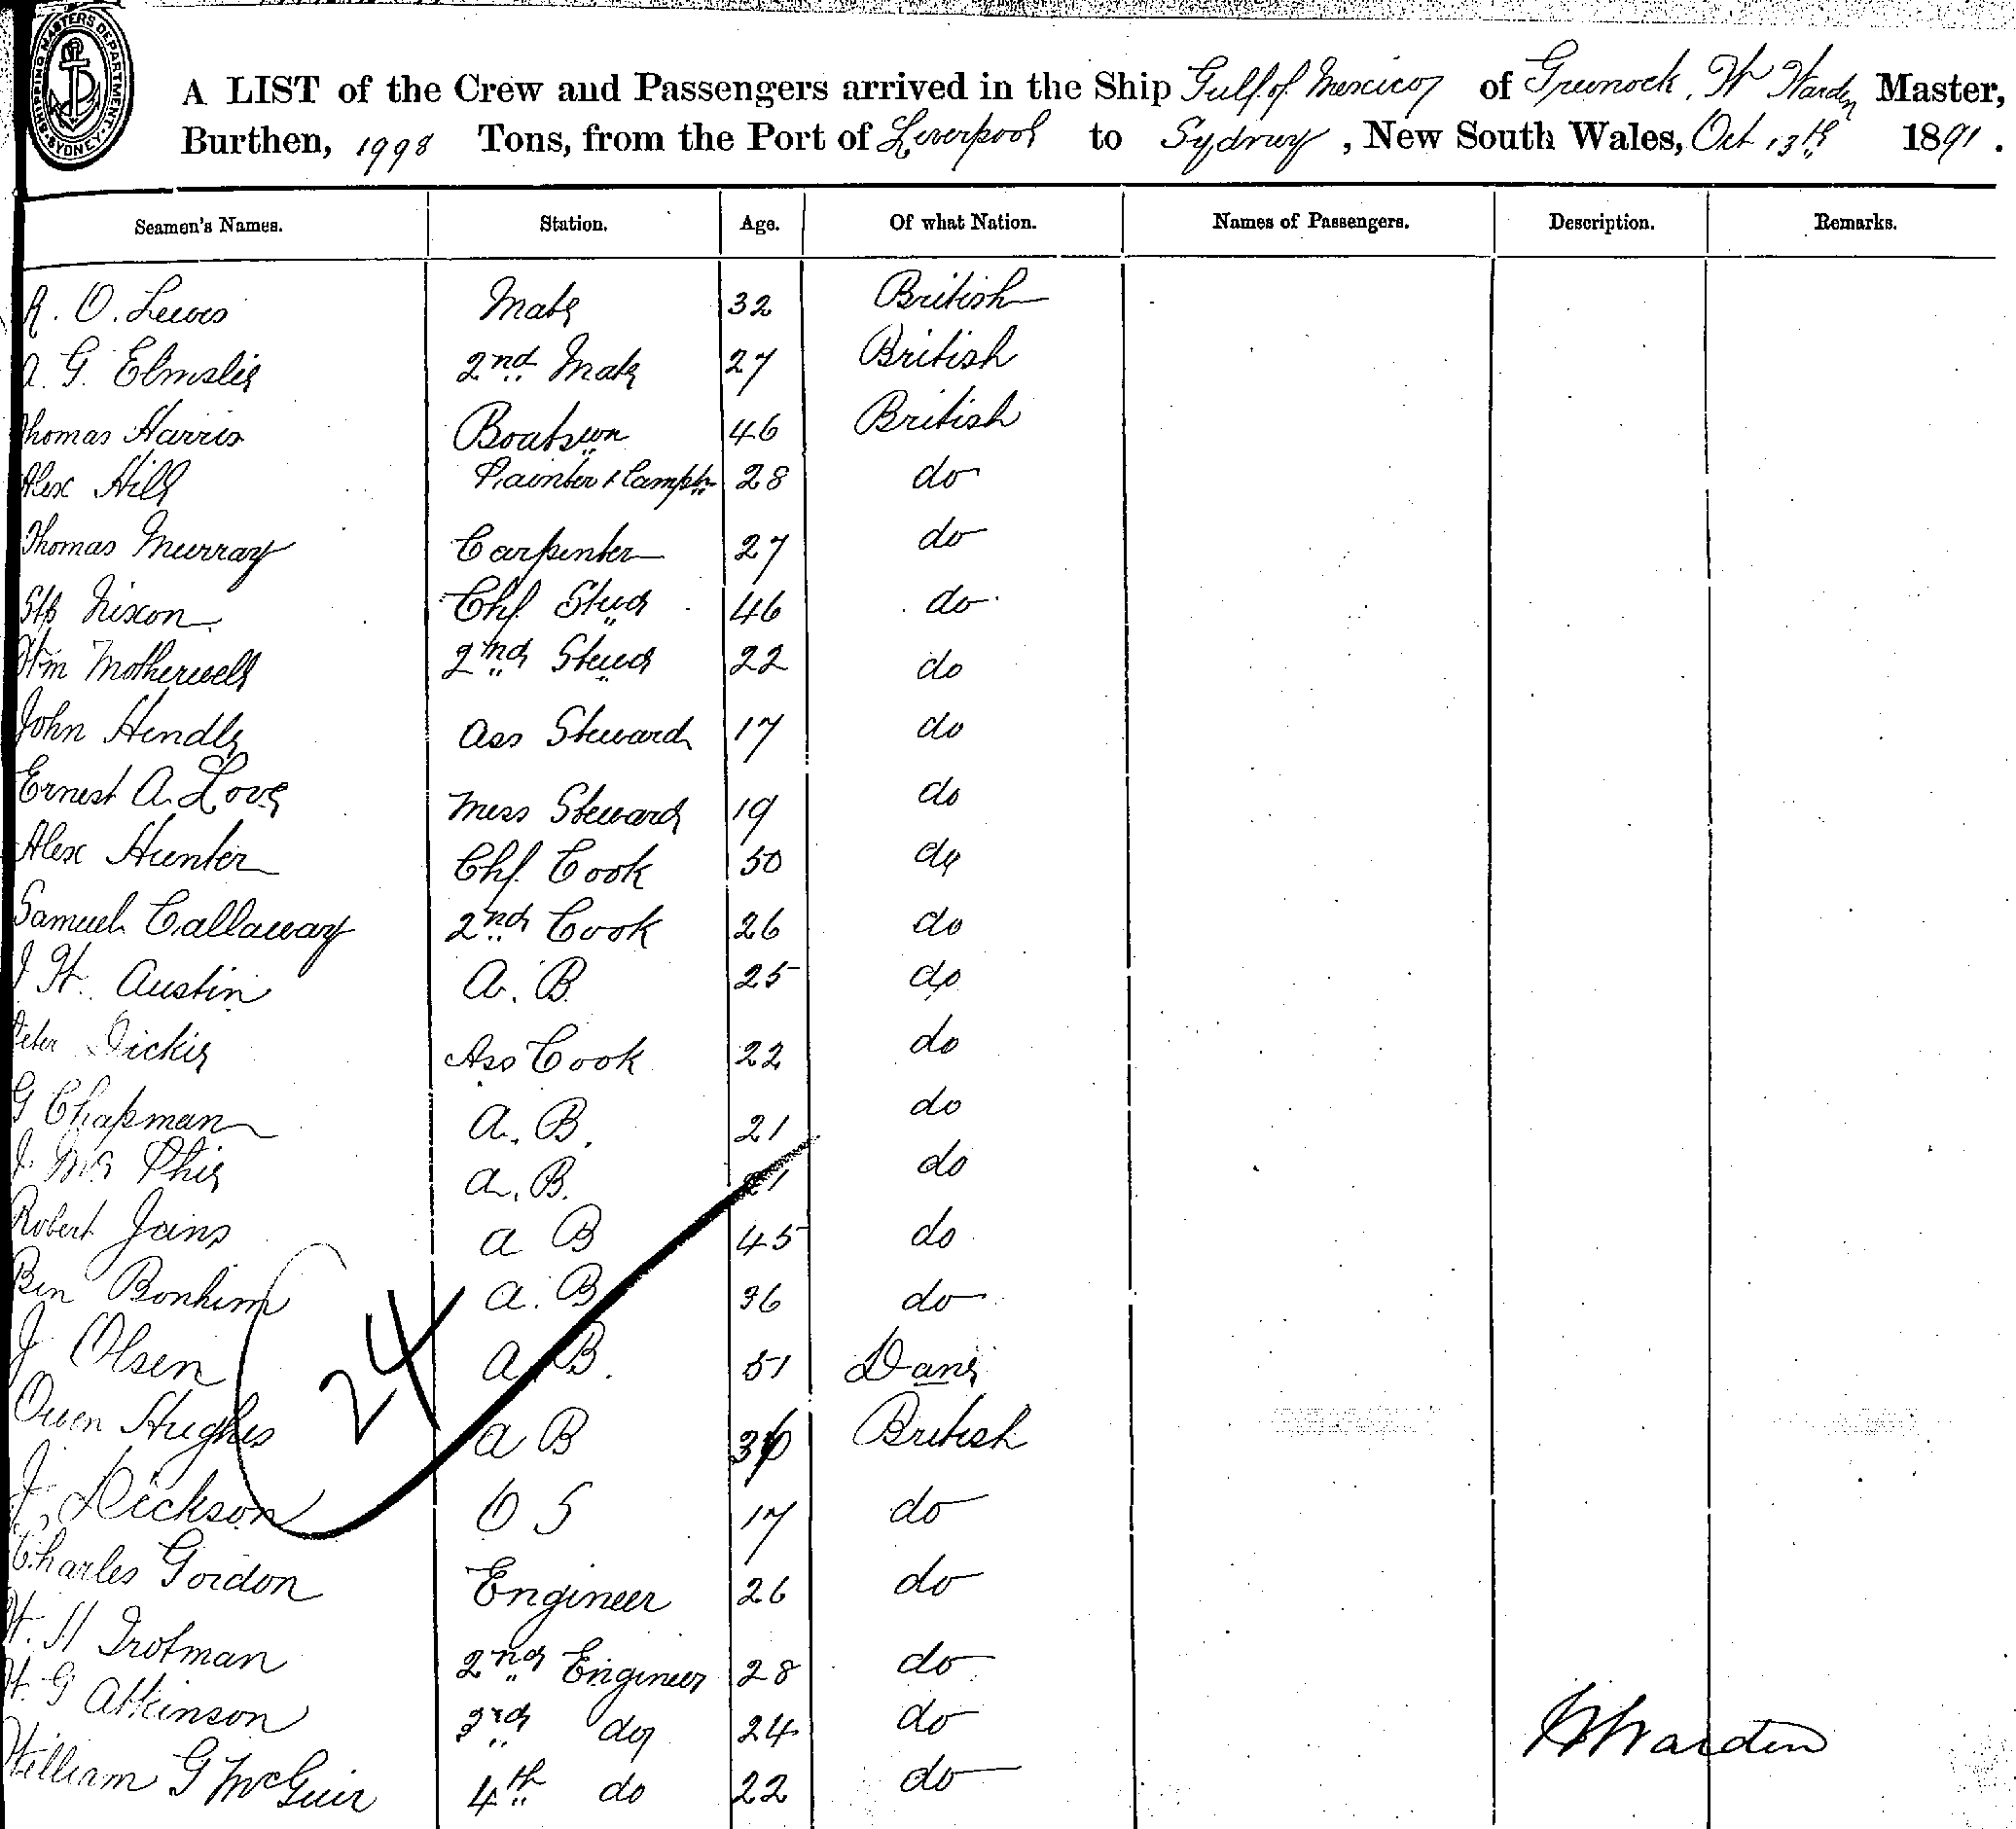 SHIPPING MASTERS DEPARTMENT. SYDNEY.
A LIST of the Crew and Passengers arrived in the Ship Gulf of Mexico of Greenock, W Warden Master,
Burthen, 1998 Tons, from the Port of Liverpool to Sydney, New South Wales, Oct 13th 1891.
Seamen's Names. Station. Age. Of what Nation. Names of Passengers. Description. Remarks.
R. O. Lewis Mate 32 British
A. G. Elmslie 2nd Mate 27 British
Thomas Harris Boatswn 46 British
Alex Hill Painter & Lamptr 28 do
Thomas Murray Carpenter 27 do
Nixon Chf Stwd 46 do
Wm Motherwell 2nd Stwd 22 do
John Hendle Ass Steward 17 do
Ernest A. Love Mess Steward 19 do
Alex Hunter Chf. Cook 50 do
Samuel Callaway 2nd Cook 26 do
J W. Austin A. B. 25 do
Peter Dickie Ass Cook 22 do
G Chapman A. B. 21 do
J. Mc Phie A. B. 21 do
Robert Jains A B 45 do
Ben Bonhim A. B 36 do
J. Olsen A. B. 51 Dane
Owen Hughes A B British
J. Dickson O S 17 do
24
Charles Gordon Engineer 26 do
W. H Trotman 2nd Engineer 28 do
W. G Atkinson 3rd do 24 do
William G McGuir 4th do 22 do
W Warden